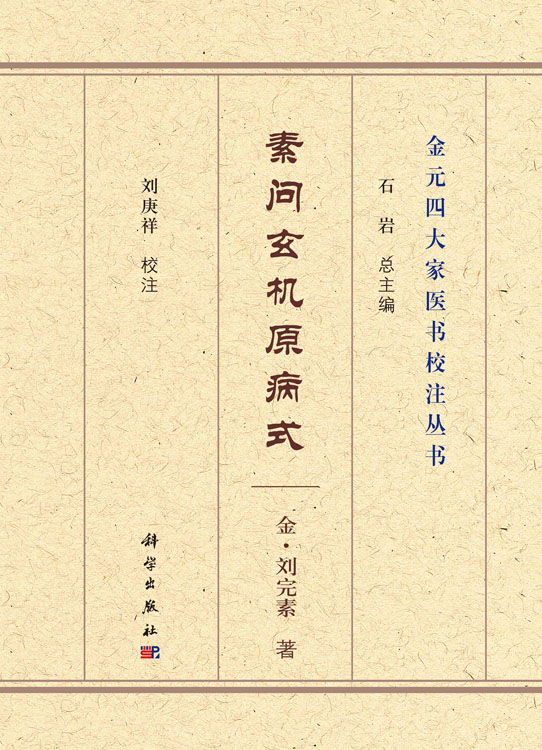 金元四大家医书校注丛书
石岩 总主编
素问玄机原病式
金·刘完素 著
刘庚祥 校注
科学出版社